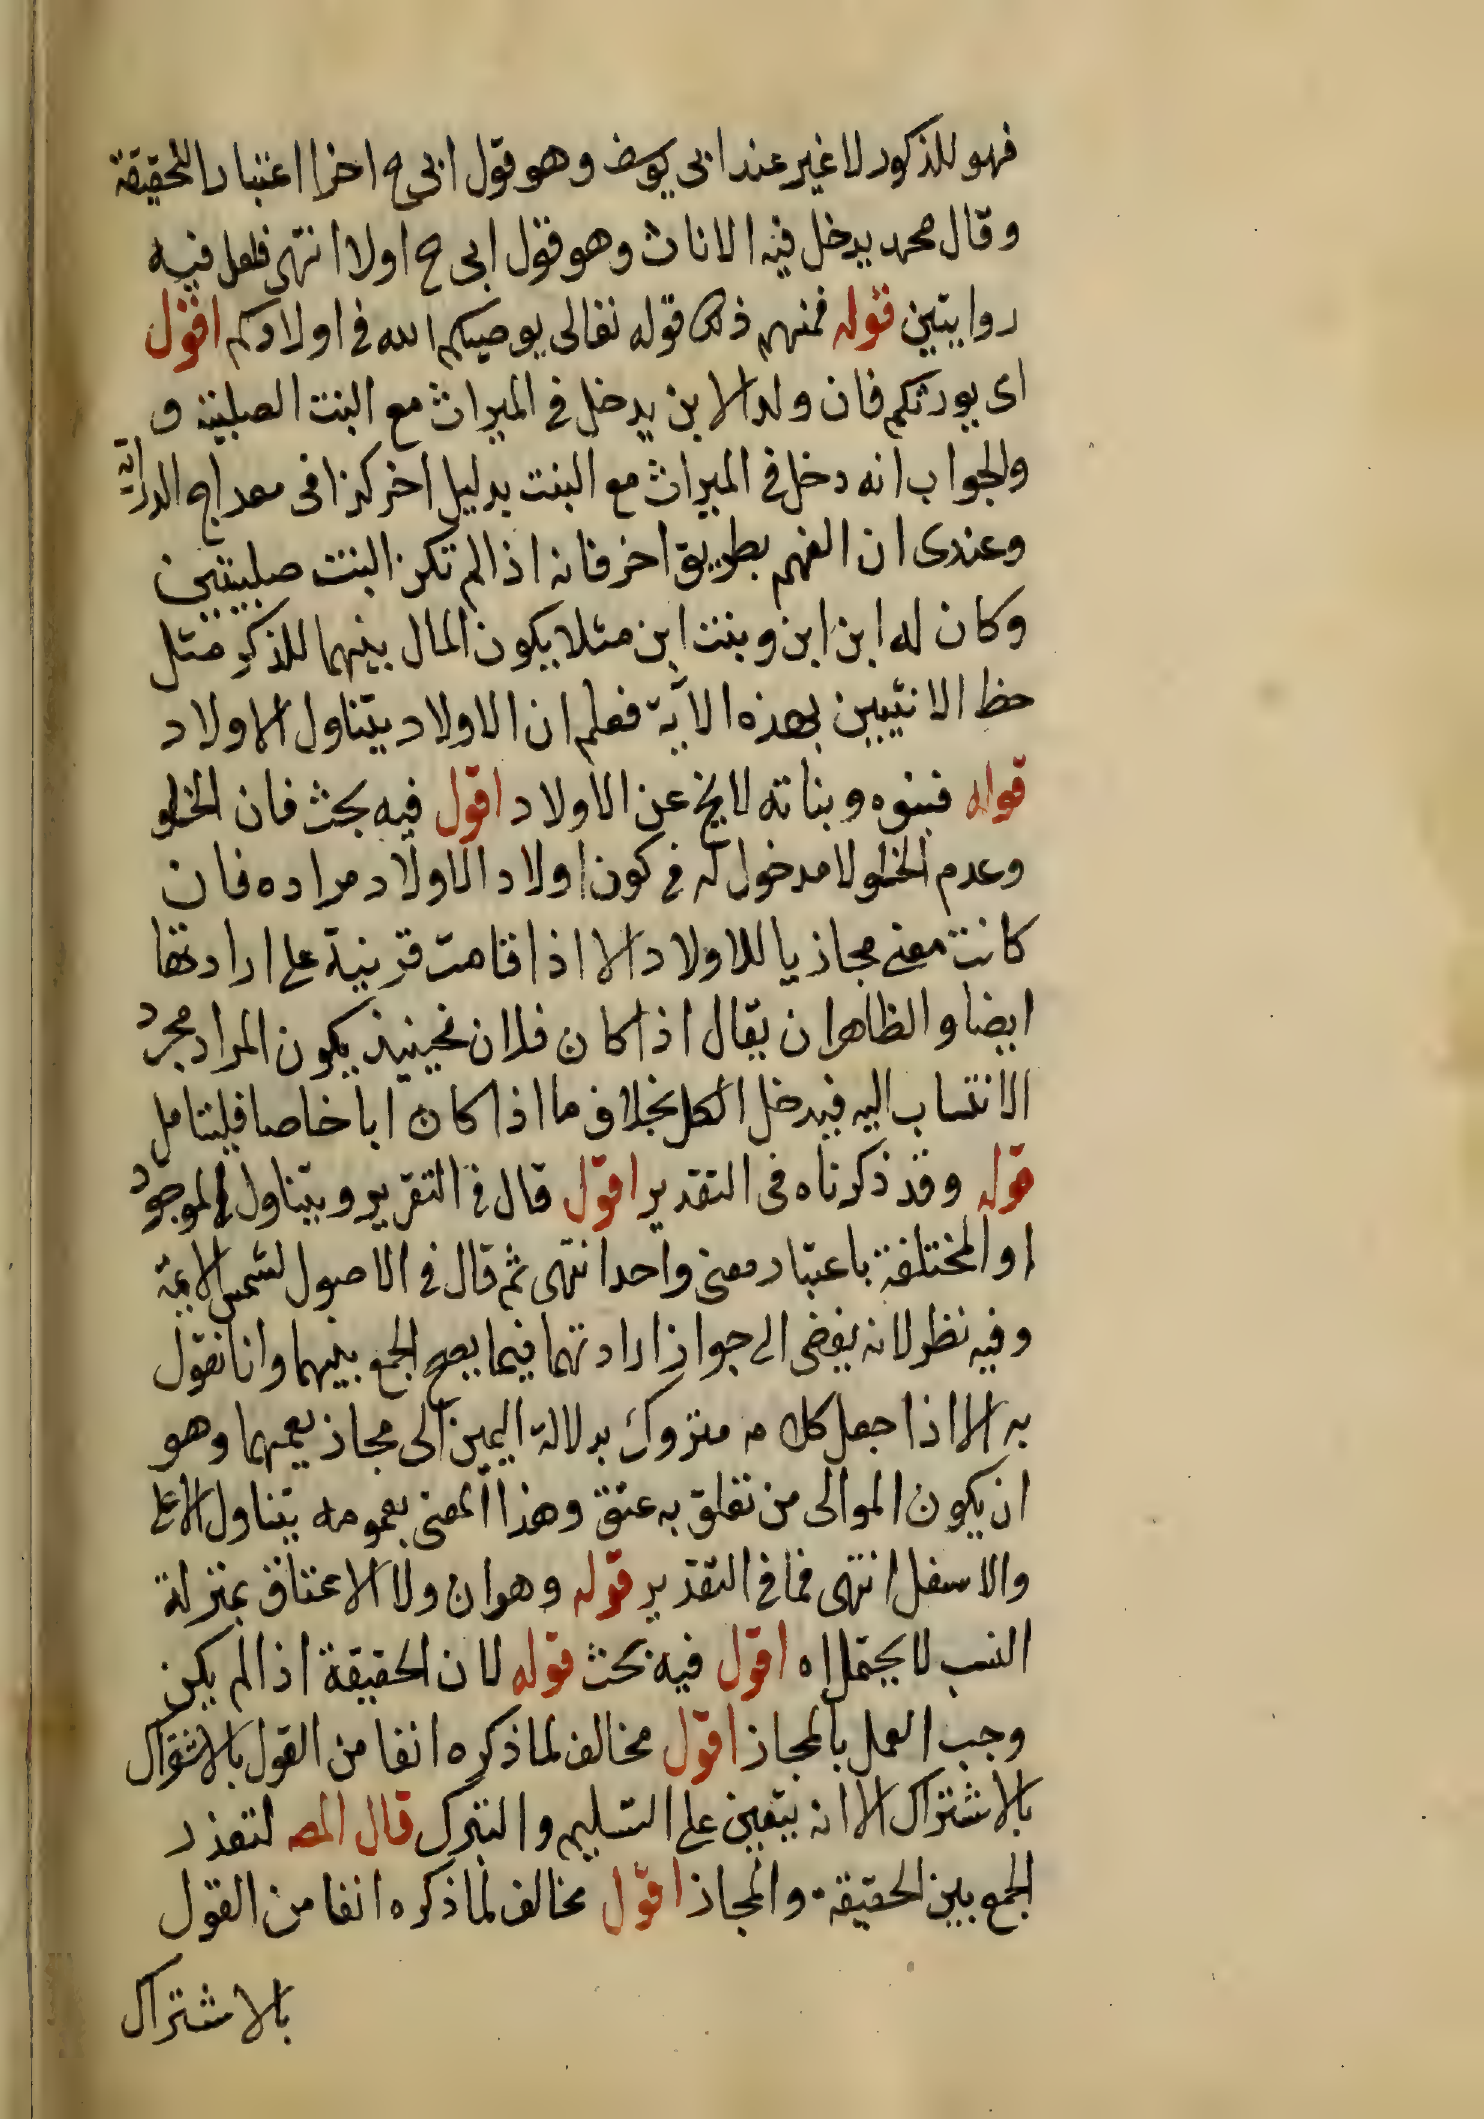 فهو للذكور لا غير عند ابى يوسف وهو قول ابى ح اخرا اعتبار الحقيقة
وقال محمد يدخل فيه الاناث وهو قول ابى ح اولا انتهى فلعل فيه
روايتين قوله فمنهم ذلك قوله تعالى يوصيكم الله فى اولادكم اقول
اى يورثكم فان ولد الابن يدخل فى الميراث مع البنت الصلبية و
والجواب انه دخل فى الميراث مع البنت بدليل اخر كذا فى معراج الدراية
وعندى ان الفهم بطريق اخر فانه اذا لم تكن البنت صلبيتين
وكان له ابن ابن وبنت ابن مثلا يكون المال بينهما للذكر مثل
حظ الانثيين بهذه الاية فعلم ان الاولاد يتناول الاولاد
قوله فبنوه وبناته لا يخ عن الاولاد اقول فيه بحث فان الخلو
وعدم الخلو لا مدخول له فى كون اولاد الاولاد مراده فان
كانت معنى مجازيا للاولاد الا اذا قامت قرينة على ارادتها
ايضا والظاهر ان يقال اذا كان فلان فحينئذ يكون المراد مجرد
الانتساب اليه فيدخل الكل بخلاف ما اذا كان ابا خاصا فليتامل
قوله وقد ذكرناه فى التقدير اقول قال فى التقرير ويتناول الموجود
او المختلفة باعتبار معنى واحد انتهى ثم قال فى الاصول لشمس الائمة
وفيه نظر لانه يفضى الى جواز ارادتهما فيما يصح الجمع بينهما وانا نقول
به الا اذا جعل كل م متروك بدلالة اليمين الى مجاز يعمهما وهو
ان يكون الموالى من تعلق به عتق وهذا المعنى بعمومه يتناول الاعلى
والاسفل انتهى فما فى التقدير قوله وهو ان ولا الاعتاق بمنزلة
النسب لا يحتمل اه اقول فيه بحث قوله لان الحقيقة اذا لم يكن
وجب العمل بالمجاز اقول مخالف لما ذكره انفا من القول بالاشتراك
بالاشتراك الا انه يتعين على التسليم والتبرك قال المصـ لتعذر
الجمع بين الحقيقة والمجاز اقول مخالف لما ذكره انفا من القول
بالاشتراك